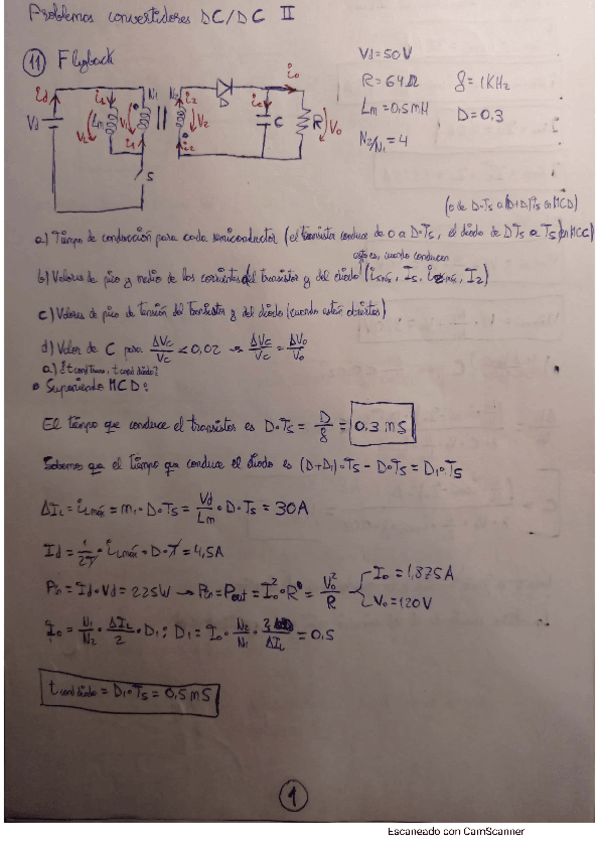 Problemas convertidores DC/DC II
11 Flyback
Vd = 50V
R = 64Ω f = 1KHz
Lm = 0,5mH D = 0.3
N2/N1 = 4
Id i2 N1 N2 i2 D ic io
Vd Lm V1 V2 C R Vo
i1 S
(o de D·Ts a (D+D1)Ts en MCD)
a) Tiempo de conducción para cada semiconductor (el transistor conduce de 0 a D·Ts, el diodo de DTs a Ts) en MCC)
esto es, cuando conducen
b) Valores de pico y medio de las corrientes del transistor y del diodo (Is, I2)
c) Valores de pico de tensión del transistor y del diodo (cuando están abiertos)
d) Valor de C para ΔVc/Vc < 0,02 → ΔVc/Vc = ΔVo/Vo
a) ¿t cond trans, t cond diodo?
• Suponiendo MCD:
El tiempo que conduce el transistor es D·Ts = D/f = 0,3 mS
Sabemos que el tiempo que conduce el diodo es (D+D1)·Ts - D·Ts = D1·Ts
ΔIL = iLmáx = m1·D·Ts = Vd/Lm · D·Ts = 30A
Id = 1/2T · iLmáx · D·T = 4,5A
Pin = Id·Vd = 225W → Pin = Pout = Io²·R = Vo²/R
Io = 1,875A
Vo = 120V
Io = N1/N2 · ΔIL/2 · D1; D1 = Io · N2/N1 · 2/ΔIL = 0,5
t cond diodo = D1·Ts = 0,5 mS
1
Escaneado con CamScanner